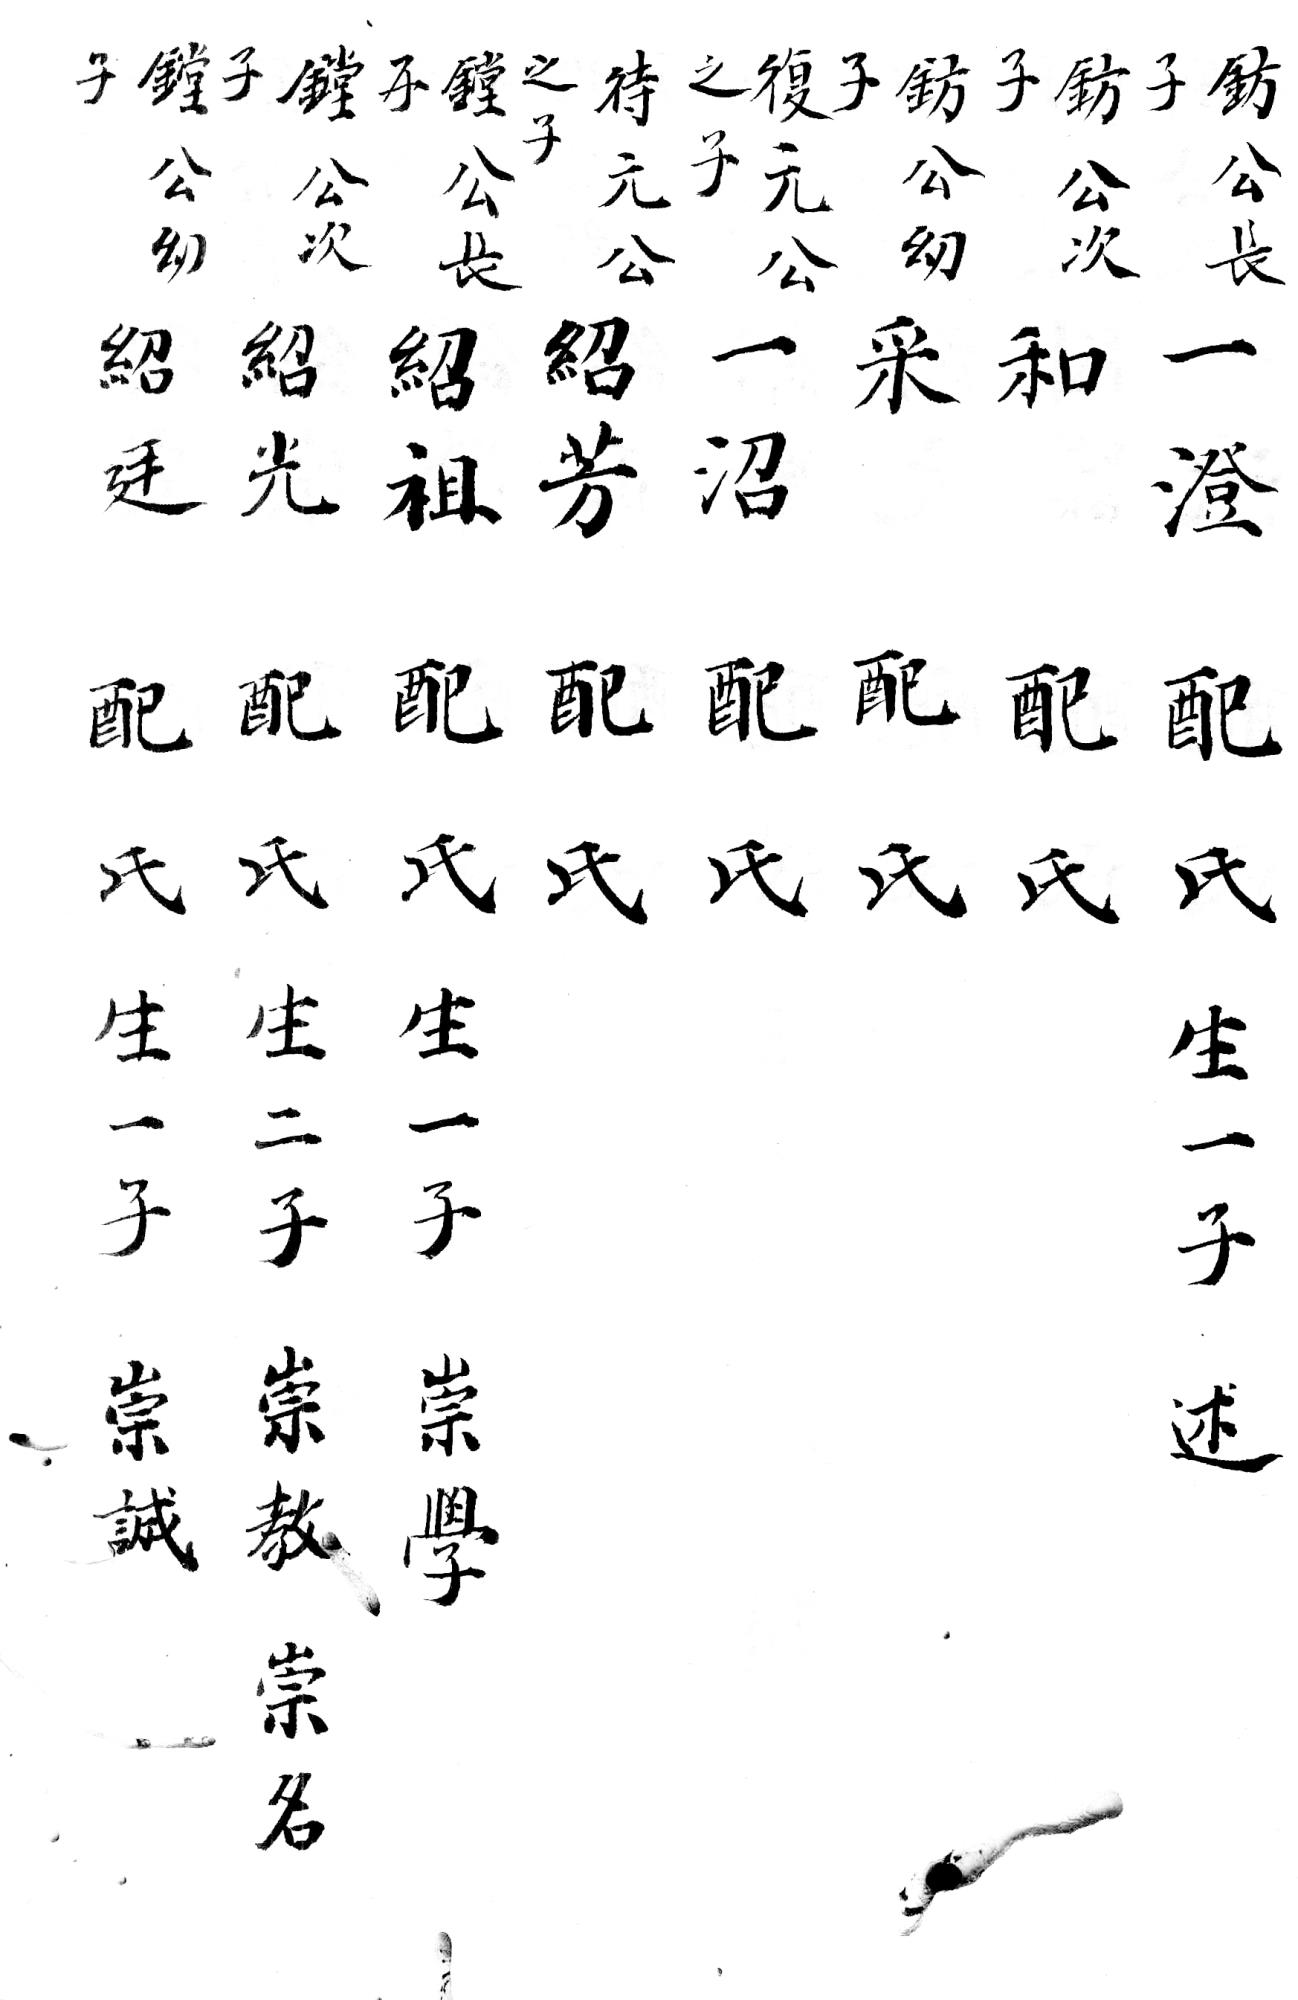 鈁公長子一澄 配 氏 生一子 述
鈁公次子和 配 氏
鈁公幼子采 配 氏
復元公之子一沼 配 氏
待元公之子紹芳 配 氏
鏜公長子紹祖 配 氏 生一子 崇學
鏜公次子紹光 配 氏 生二子 崇教 崇名
鏜公幼子紹廷 配 氏 生一子 崇誠